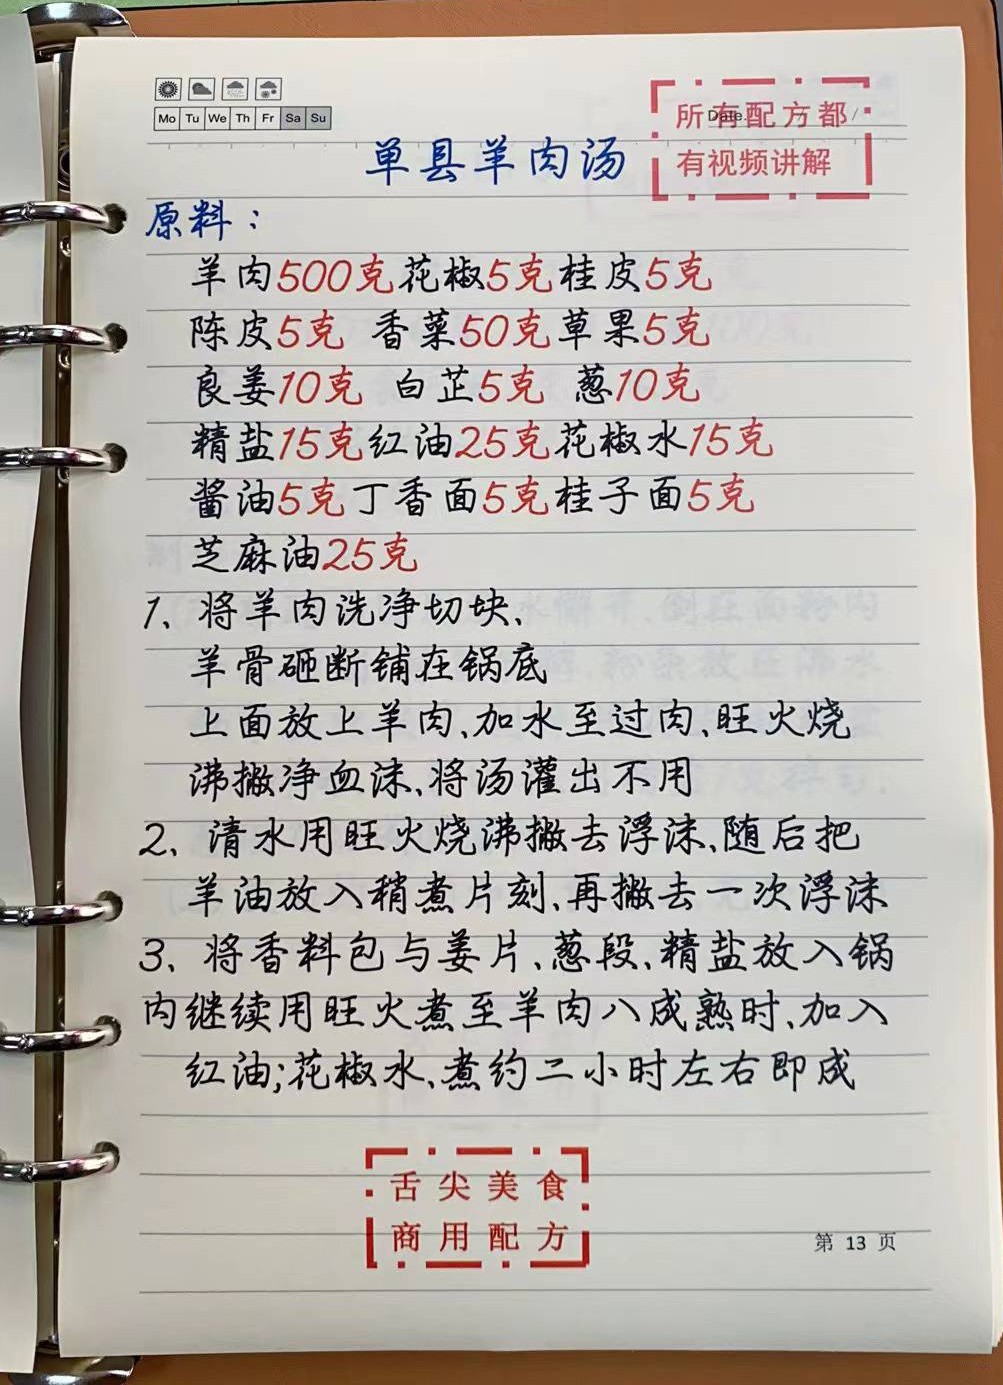 Mo Tu We Th Fr Sa Su
Date. / /
所有配方都
有视频讲解
单县羊肉汤
原料：
羊肉500克花椒5克桂皮5克
陈皮5克 香菜50克草果5克
良姜10克 白芷5克 葱10克
精盐15克红油25克花椒水15克
酱油5克丁香面5克桂子面5克
芝麻油25克
1、将羊肉洗净切块、
羊骨砸断铺在锅底
上面放上羊肉、加水至过肉、旺火烧
沸撇净血沫、将汤灌出不用
2、清水用旺火烧沸撇去浮沫、随后把
羊油放入稍煮片刻、再撇去一次浮沫
3、将香料包与姜片、葱段、精盐放入锅
内继续用旺火煮至羊肉八成熟时、加入
红油;花椒水、煮约二小时左右即成
舌尖美食
商用配方
第 13 页